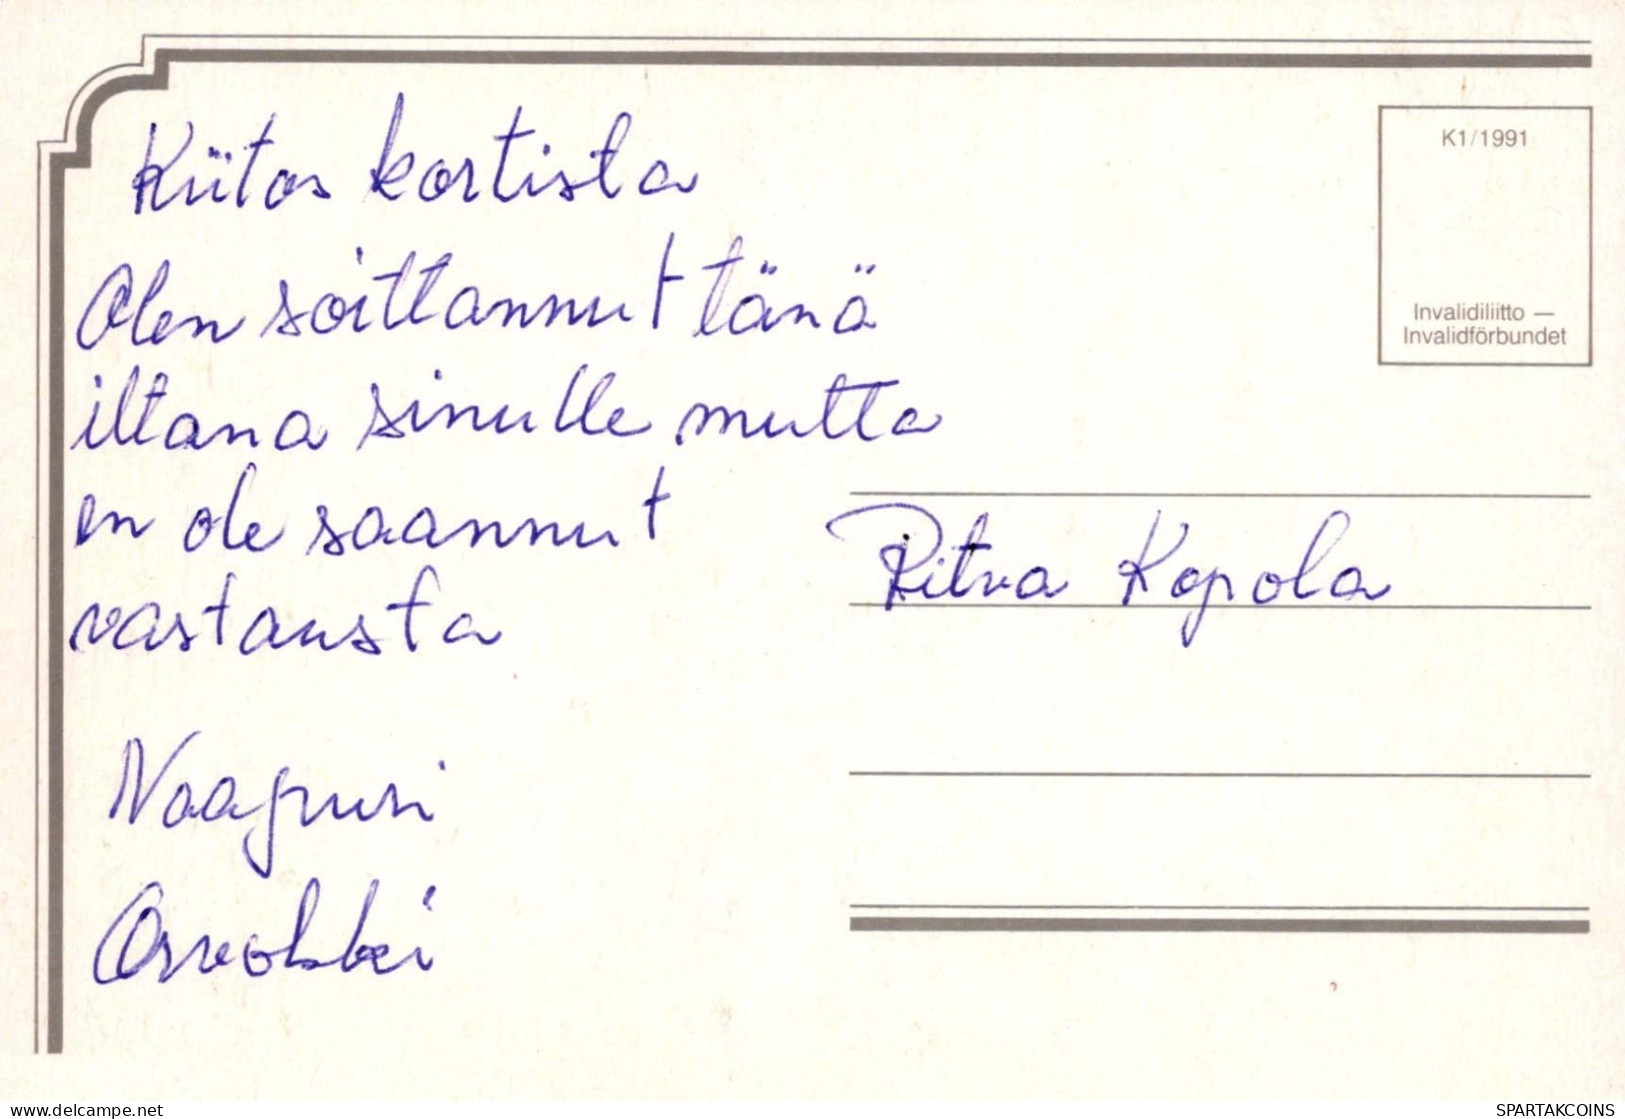 Kiitos kortista
Olen soittannut tänä
iltana sinulle mutta
en ole saannut
vastausta
Naapuri
Orvokki
K1/1991
Invalidiliitto —
Invalidförbundet
Ritva Kopola
https://www.delcampe.net
SPARTAKCOINS